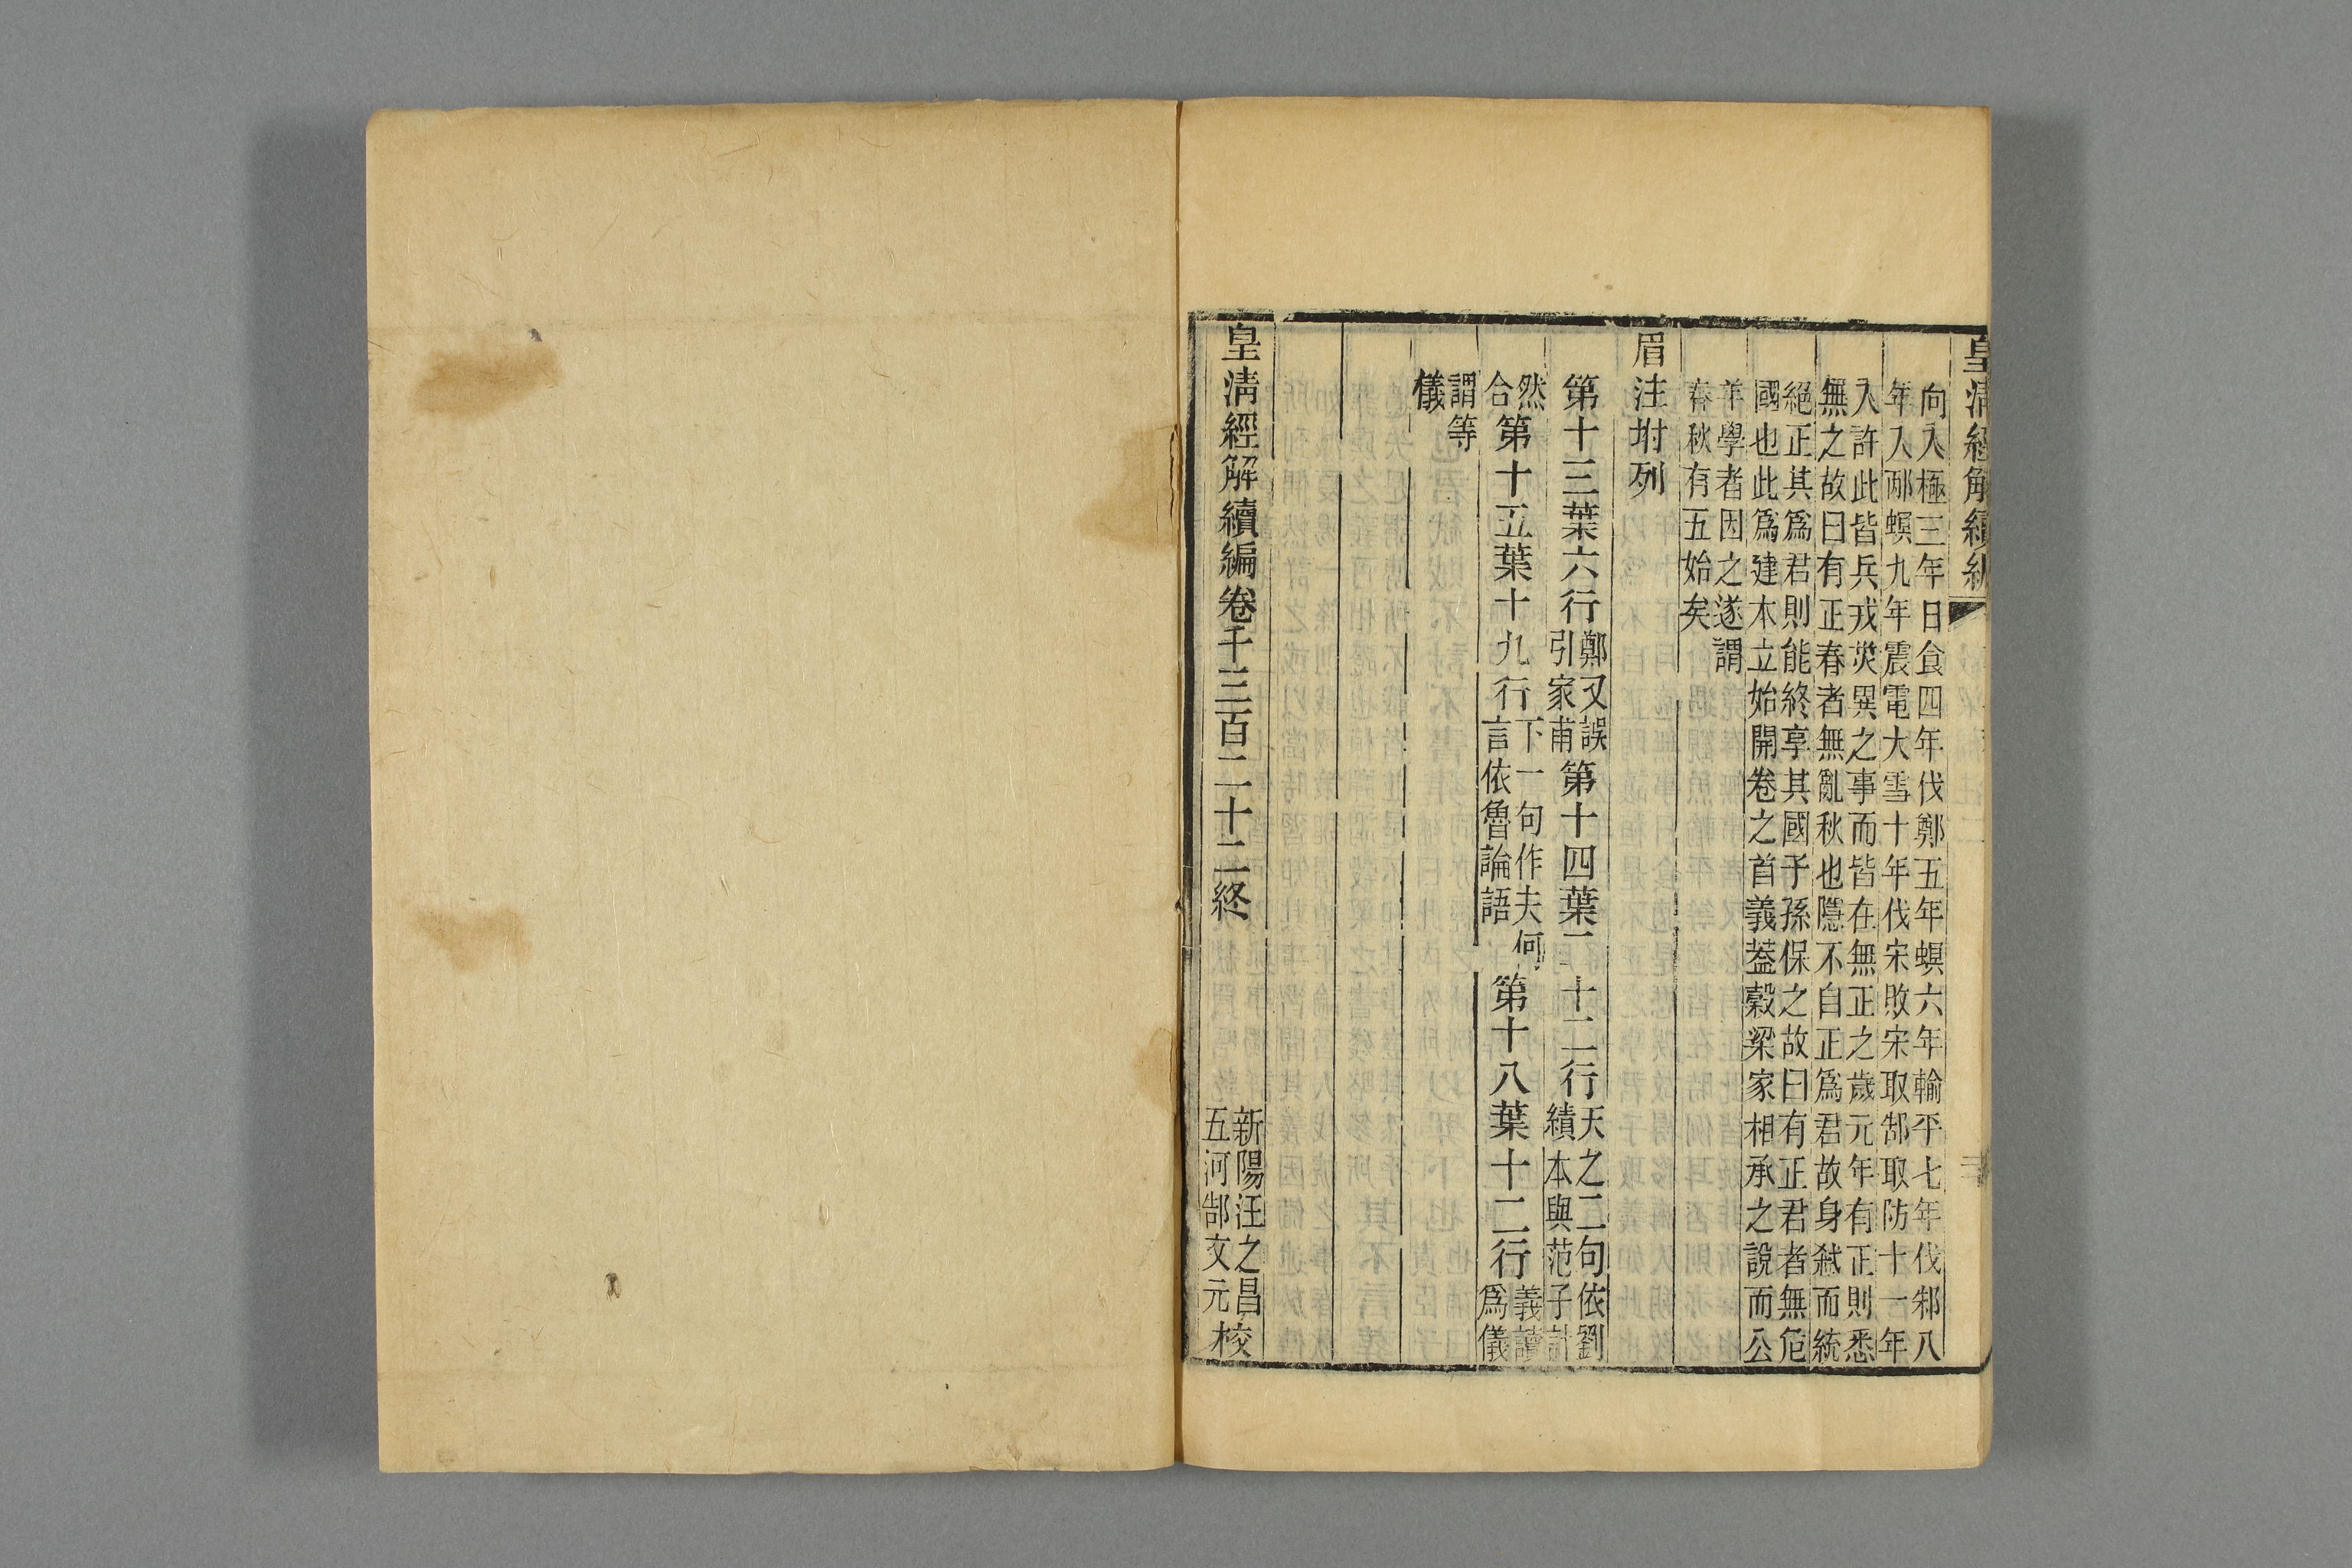 皇清經解續編
向入極三年日食四年伐鄭五年螟六年輸平七年伐邾八
年入郕螟九年震電大雪十年伐宋敗宋取郜取防十一年
入許此皆兵戎災異之事而皆在無正之歲元年有正則悉
無之故曰有正春者無亂秋也隱不自正爲君故身弑而統
絕正其爲君則能終享其國子孫保之故曰有正君者無危
國也此爲建本立始開卷之首義葢穀梁家相承之說而公
羊學者因之遂謂
春秋有五始矣
眉注坿列
第十三葉六行鄭又誤引家甫第十四葉二十二行天之二句依劉績本與范子計
然合第十五葉十九行下一句作夫何言依魯論語第十八葉十二行義讀爲儀
謂等儀
皇清經解續編卷千三百二十二終
新陽汪之昌
五河郜文元校